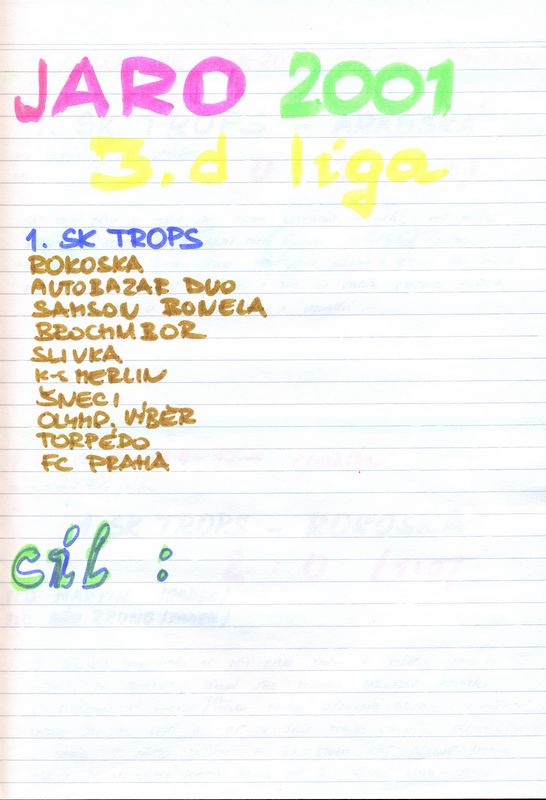 JARO 2001
3.d liga
1. SK TROPS
ROKOSKA
AUTOBAZAR DUO
SAMSON BONELA
BROCHMBOR
SLIVKA
MERLIN
ŠNECI
OLYMP. VÝBĚR
TORPÉDO
FC PRAHA
cíl :